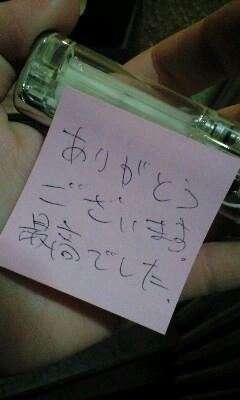 ありがとう
ございます。
最高でした.